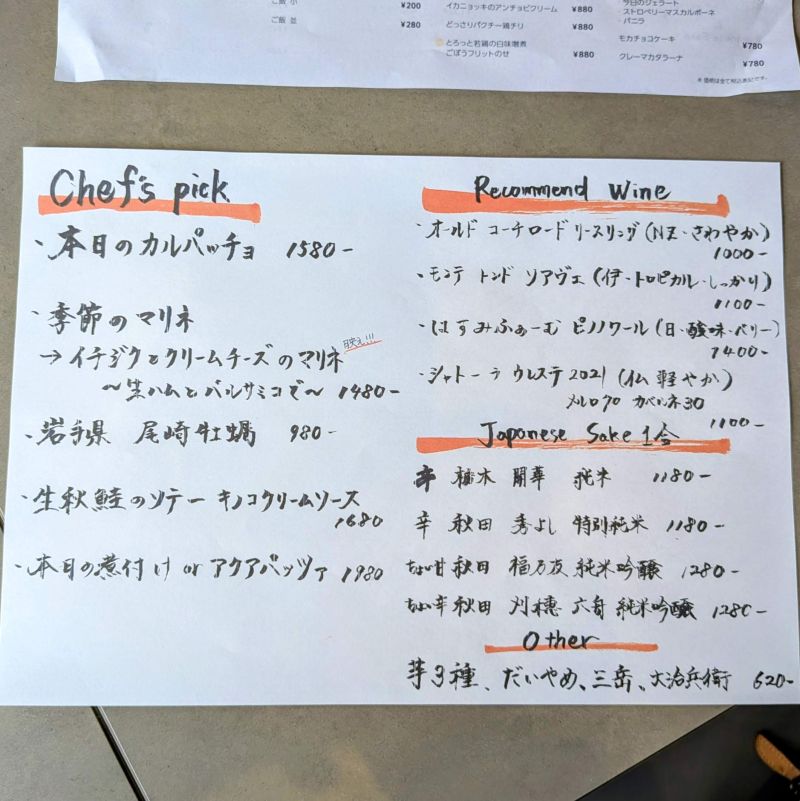 ご飯 小 ¥200
ご飯 並 ¥280
イカニョッキのアンチョビクリーム ¥880
どっさりパクチー鶏チリ ¥880
とろっと若鶏の白味噌煮
ごぼうフリットのせ ¥880
今日のジェラート
・ストロベリーマスカルポーネ
・バニラ
モカチョコケーキ ¥780
クレーマカタラーナ ¥780
※価格は全て税込表記です。
Chef's pick
・本日のカルパッチョ 1580-
・季節のマリネ
→イチジクとクリームチーズのマリネ 映え!!!
〜生ハムとバルサミコで〜 1480-
・岩手県 尾崎牡蠣 980-
・生秋鮭のソテー キノコクリームソース
1680
・本日の煮付け or アクアパッツァ 1980
Recommend Wine
・オールド コーチロード リースリング (NZ・さわやか)
1000-
・モンテ トンド ソアヴェ (伊・トロピカル・しっかり)
1100-
・はすみふぁーむ ピノノワール (日・酸味・ベリー)
1400-
・シャトー ラ ウレステ 2021 (仏 軽やか)
メルロ70 カベルネ30
1100-
Japanese Sake 1合
辛 栃木 開華 純米 1180-
辛 秋田 秀よし 特別純米 1180-
ちょい甘 秋田 福乃友 純米吟醸 1280-
ちょい辛 秋田 刈穂 六舟 純米吟醸 1280-
Other
芋3種、だいやめ、三岳、大治兵衛 620-